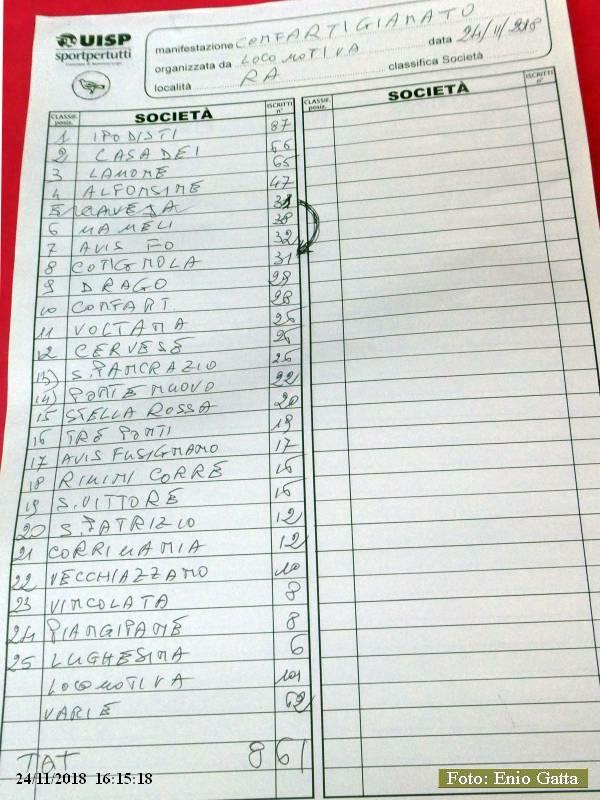 UISP
sportpertutti
manifestazione CONFARTIGIANATO
organizzata da LOCOMOTIVA data 24/11/2018
località RA classifica Società
CLASSIF. SOCIETÀ ISCRITTI n° CLASSIF. SOCIETÀ ISCRITTI n°
1 IPODISTI 87
2 CASADEI 66
3 LAMONE 65
4 ALFONSINE 47
RAVENNA
6 MAMELI 38
7 AVIS FO 32
8 COTIGNOLA 31
9 DRAGO 29
10 CONFART. 28
11 VOLTANA 26
12 CERVESE 26
13) S.PANCRAZIO 26
14) PONTE NUOVO 22
15 STELLA ROSSA 20
16 TRE PONTI 19
17 AVIS FUSIGNANO 17
18 RIMINI CORRE 16
19 S.VITTORE 16
20 S.PATRIZIO 12
21 CORRI MANIA 12
22 VECCHIAZZANO 10
23 VINCOLATA 8
24 PIANGIPANE 8
25 LUGHESINA 6
LOCOMOTIVA 101
VARIE 62
TOT 861
24/11/2018 16:15:18
Foto: Enio Gatta